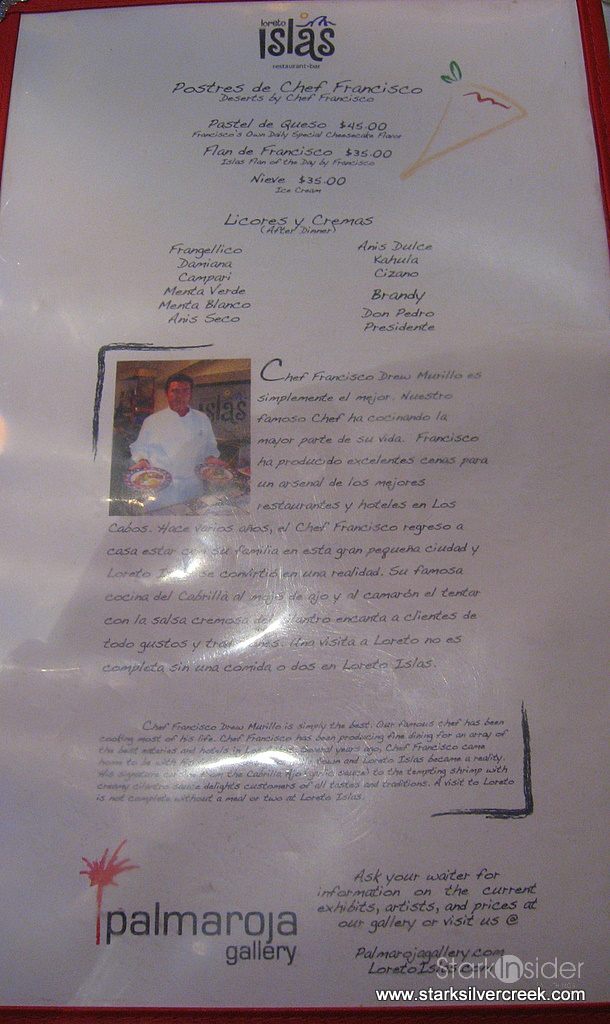 loreto
islas
restaurant•bar
Postres de Chef Francisco
Deserts by Chef Francisco
Pastel de Queso $45.00
Francisco's Own Daily Special Cheesecake Flavor
Flan de Francisco $35.00
Islas Flan of the Day by Francisco
Nieve $35.00
Ice Cream
Licores y Cremas
(After Dinner)
Frangellico
Damiana
Campari
Menta Verde
Menta Blanco
Anis Seco
Anis Dulce
Kahula
Cizano
Brandy
Don Pedro
Presidente
islas
Chef Francisco Drew Murillo es
simplemente el mejor. Nuestro
famoso Chef ha cocinando la
mayor parte de su vida. Francisco
ha producido excelentes cenas para
un arsenal de los mejores
restaurantes y hoteles en Los
Cabos. Hace varios años, el Chef Francisco regreso a
casa estar con su familia en esta gran pequeña ciudad y
Loreto se convirtió en una realidad. Su famosa
cocina del Cabrilla al mojo de ajo y al camarón el tentar
con la salsa cremosa del cilantro encanta a clientes de
todo gustos y Una visita a Loreto no es
completa sin una comida o dos en Loreto Islas.
Chef Francisco Drew Murillo is simply the best. Our famous chef has been
cooking most of his life. Chef Francisco has been producing fine dining for an array of
the best eateries and hotels in Los Several years ago, Chef Francisco came
home to be with town and Loreto Islas became a reality.
His signature from the Cabrilla Ajo (garlic sauce) to the tempting shrimp with
creamy cilantro sauce delights customers of all tastes and traditions. A visit to Loreto
is not complete without a meal or two at Loreto Islas.
palmaroja
gallery
Ask your waiter for
information on the current
exhibits, artists, and prices at
our gallery or visit us @
Palmarojagallery.com
LoretoIslas.com
StarkInsider
www.starksilvercreek.com